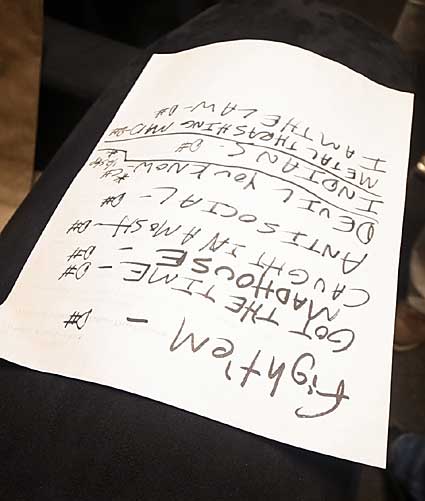 fight'em - D#
GOT THE TIME - D#
MADHOUSE - D#
CAUGHT IN A MOSH - D#
ANTISOCIAL - D#
DEVIL YOU KNOW *C#
INDIANS - D#
METAL THRASHING MAD - D#
I AM THE LAW - D#